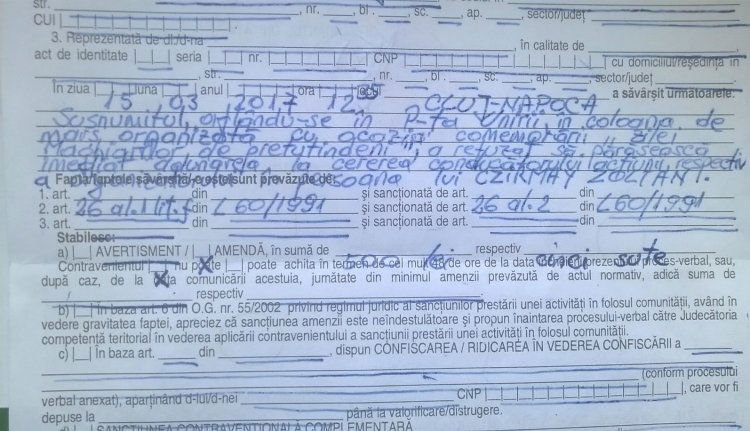 str. , nr. , bl. , sc. , ap. , sector/județ
CUI
3. Reprezentată de dl./d-na , în calitate de ,
act de identitate seria nr. CNP cu domiciliul/reședința în
, str. , nr. , bl. , sc. , ap. , sector/județ
În ziua 15 luna 03 anul 2017 ora 12 CLUJ-NAPOCA a săvârșit următoarele:
Susnumitul, aflându-se în P-ța Unirii în coloana de
marș organizată cu ocazia comemorării zilei
Maghiarilor de pretutindeni, a refuzat să părăsească
imediat adunarea la cererea conducătorului acțiunii, respectiv
a persoana lui CZIRMAY ZOLTAN.
Fapta/faptele săvârșită/e este/sunt prevăzute de:
1. art. din și sancționată de art. din
2. art. 26 al.1 lit.f din L 60/1991 și sancționată de art. 26 al.2 din L60/1991
3. art. din și sancționată de art. din
Stabilesc:
a) AVERTISMENT / AMENDĂ, în sumă de 500 lei respectiv cinci sute
Contravenientul nu poate poate achita în termen de cel mult 48 de ore de la data proces-verbal, sau,
după caz, de la data comunicării acestuia, jumătate din minimul amenzii prevăzută de actul normativ, adică suma de
respectiv
b) În baza art. 6 din O.G. nr. 55/2002 privind regimul juridic al sancțiunilor prestării unei activități în folosul comunității, având în
vedere gravitatea faptei, apreciez că sancțiunea amenzii este neîndestulătoare și propun înaintarea procesului-verbal către Judecătoria
competentă teritorial în vederea aplicării contravenientului a sancțiunii prestării unei activități în folosul comunității.
c) În baza art. din , dispun CONFISCAREA / RIDICAREA ÎN VEDEREA CONFISCĂRII a
(conform procesului
verbal anexat), aparținând d-lui/d-nei CNP , care vor fi
depuse la până la valorificare/distrugere.
d) SANCȚIUNEA CONTRAVENȚIONALĂ COMPLEMENTARĂ